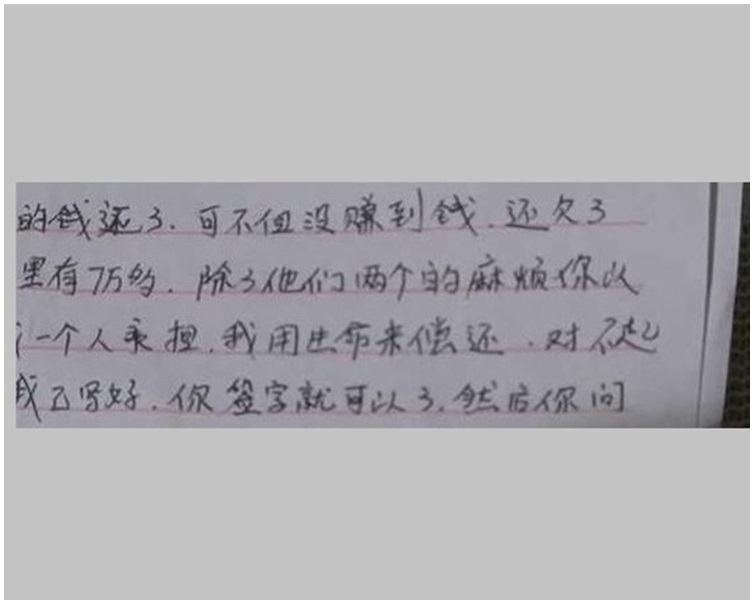 的钱还了.可不但没赚到钱.还欠了
里有7万的.除了他们两个的麻烦你以
一个人承担.我用生命来偿还.对不起
我已写好.你签字就可以了.然后你问